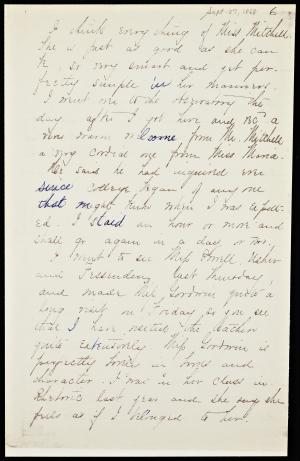 Sept. 27, 1868 6
I think everything of Miss Mitchell.
She is just as good as she can
be, so very smart and yet per-
fectly simple in her manners.
I went over to the Observatory the
day after I got here and had a
very warm welcome from Mr. Mitchell
a very cordial one from Miss Maria.
He said he had inquired ever
since College began of any one
that might know when I was expect-
ed. I staid an hour or more and
shall go again in a day or two.
I went to see Miss Powell, Usher
and Fessenden last Thursday,
and made Miss Goodwin quite a
long visit on Friday so you see
that I have visited the teachers
quite extensively. Miss Goodwin is
perfectly lovely in looks and
character. I was in her class in
Rhetoric last year and she says she
feels as if I belonged to her.